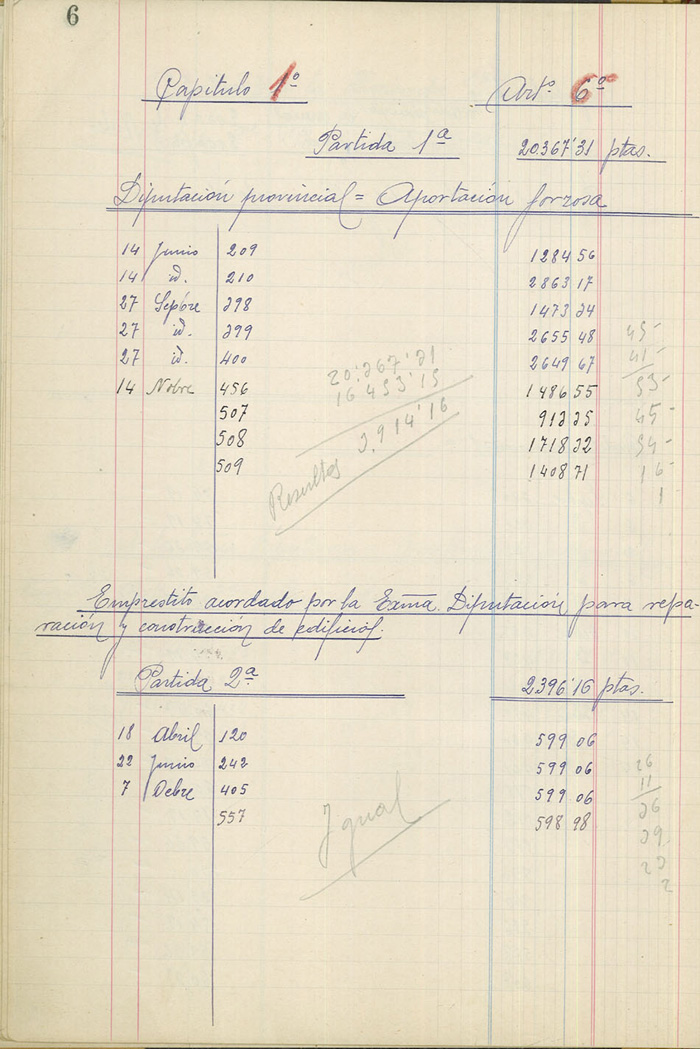 6
Capitulo 1º Artº 6º
Partida 1ª 20.367'31 ptas.
Diputación provincial = Aportación forzosa
14 Junio 209 1284 56
14 id. 210 2863 17
27 Sepbre 398 1473 34
27 id. 399 2655 48 45-
27 id. 400 2649 67 41-
14 Nobre 456 1486 55 53-
507 913 35 45-
508 1718 32 34-
509 1408 71 16-
1
20.367'31
16.453'15
3.914'16
Resultas
Emprestito acordado por la Exma. Diputación para repa-
ración y construcción de edificios.
Partida 2ª 2396'16 ptas.
18 Abril 120 599 06
22 Junio 242 599 06 26
7 Ocbre 405 599 06 11
557 598 98 36
39
23
2
Igual